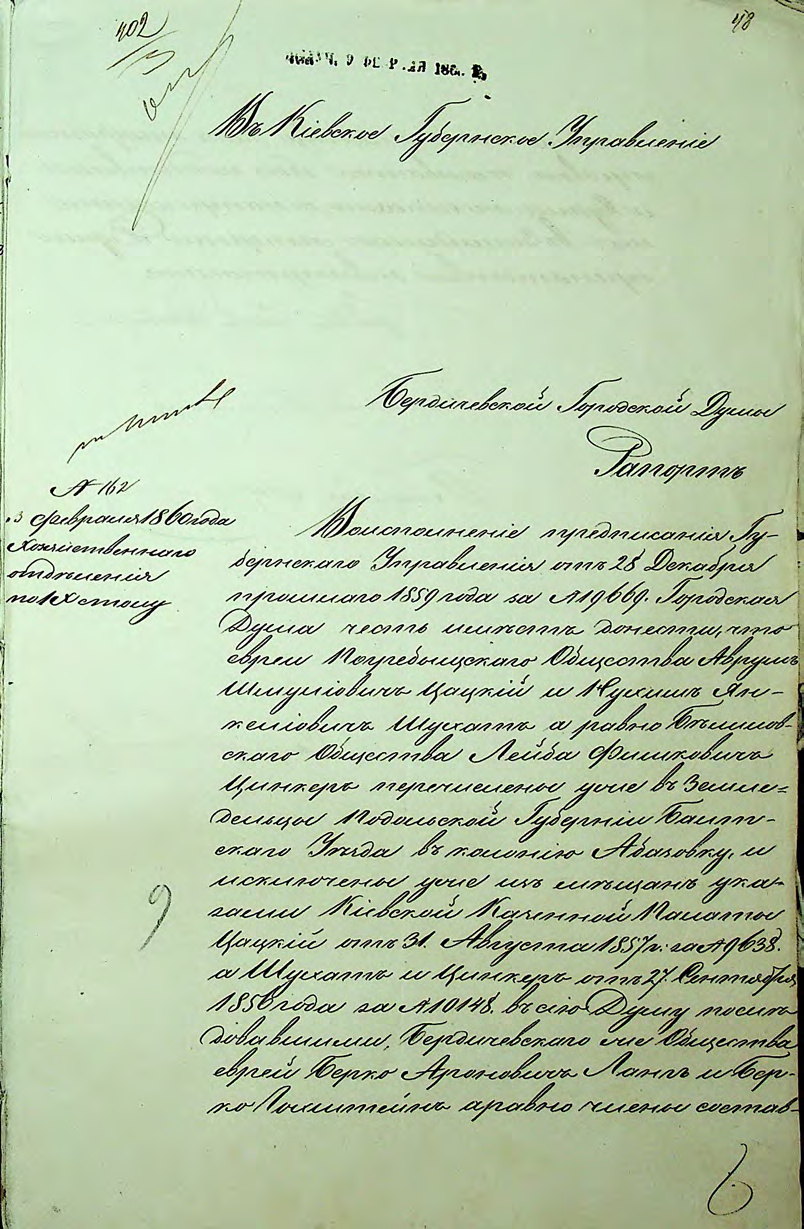 402
48
Въ Кіевское Губернское Управленіе
Бердичевской Городской Думы
Рапортъ
№ 162
3 февраля 1860 года
Хозяйственнаго
отдѣленія
по 1 Х столу
Воисполненіе предписанія Гу-
бернскаго Управленія отъ 28 Декабря
прошлаго 1859 года за № 19669. Городская
Дума честь имѣетъ донести, что
евреи Погребыщскаго Общества Аврумъ
Шмуліовичъ Цацкій и Нухимъ Ян-
келіовичъ Шухатъ а равно Бѣлилов-
скаго Общества Лейба Фишковичъ
Цинкеръ перечислены уже въ Земле-
дельцы Подольской Губерніи Балт-
скаго Уѣзда въ колонію Абазовку, и
исключены уже изъ мѣщанъ ука-
зами Кіевской Казенной Палаты
Цацкій отъ 31. Августа 1857 г: за № 9638.
а Шухатъ и Цинкеръ отъ 27. Сентября
1856 года за № 10148. въ сію Думу послѣ-
довавшими, Бердичевскаго же Общества
еврей Берко Ароновичъ Лангъ и Бер-
ко Гольштейнъ аравно члены состав-